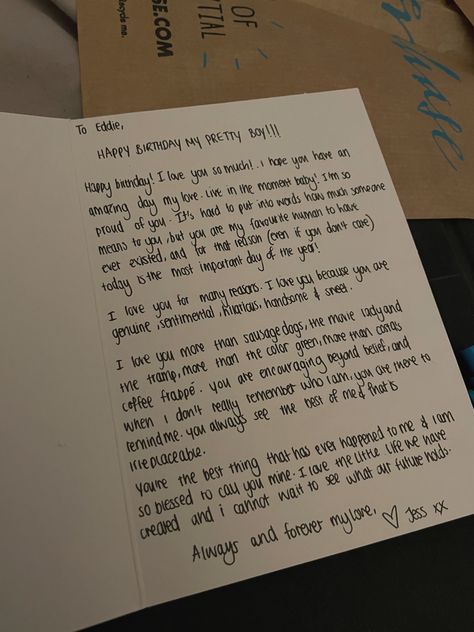 Recycle me.
SE.COM
OF
TIAL
To Eddie,
HAPPY BIRTHDAY MY PRETTY BOY!!!
Happy birthday! I love you so much! I hope you have an
amazing day my love. Live in the moment baby! I'm so
proud of you. It's hard to put into words how much someone
means to you, but you are my favourite human to have
ever existed, and for that reason (even if you don't care)
today is the most important day of the year!
I love you for many reasons. I love you because you are
genuine, sentimental, hilarious, handsome & sweet.
I love you more than sausage dogs, the movie lady and
the tramp, more than the color green, more than costas
coffee frappé. you are encouraging beyond belief, and
when I don't really remember who I am, you are there to
remind me. you always see the best of me & that is
irreplaceable.
you're the best thing that has ever happened to me & I am
so blessed to call you mine. I love the little life we have
created and i cannot wait to see what our future holds.
Always and forever my love, ♡ Jess xx